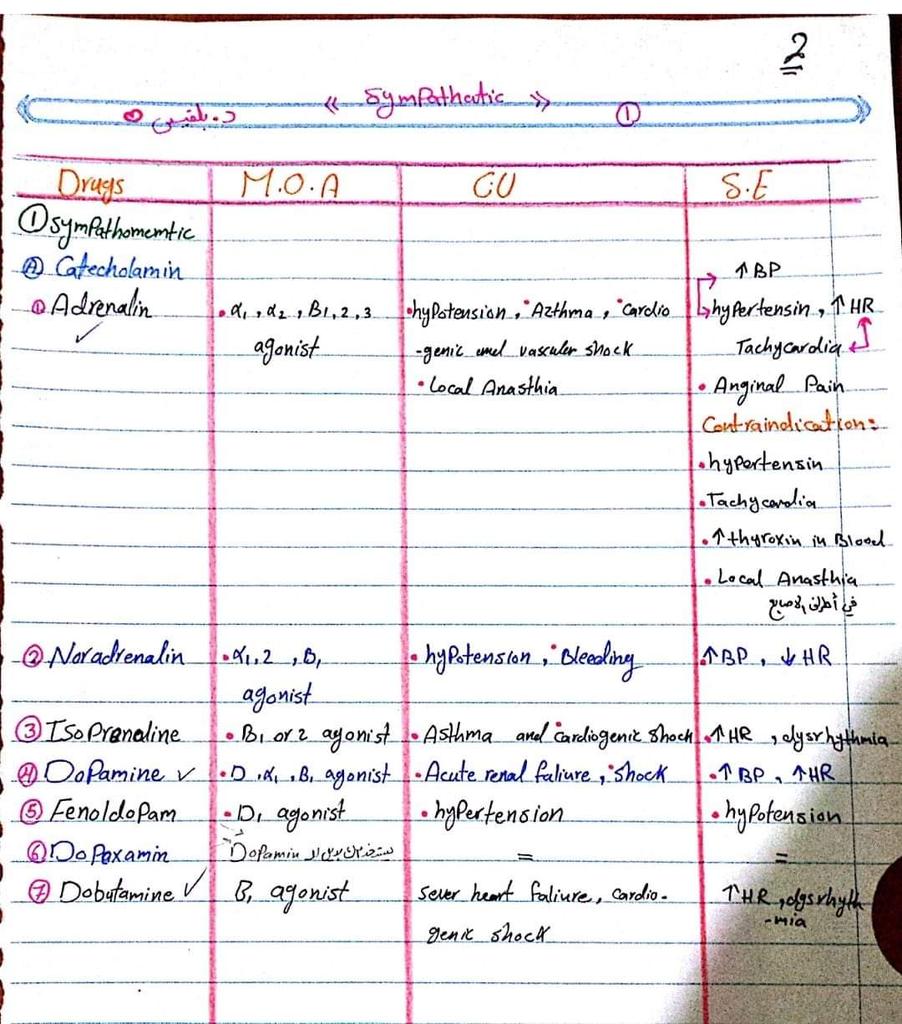 2
« SymPathatic »
د. بلقيس ①
Drugs M.O.A CU S.E
① SymPathomemtic
Ⓐ Catecholamin ↑ BP
① Adrenalin • α₁, α₂, B1,2,3 • hypotension, • Azthma, • Cardio ↳ hypertensin, ↑ HR
✓ agonist -genic and vascular shock Tachycardia
• Local Anasthia • Anginal Pain
Contraindication:
• hypertensin
• Tachycardia
• ↑ thyroxin in Blood
• Local Anasthia
في أطراف الاصابع
② Noradrenalin • α1,2 , B₁ • hypotension, • Bleeding • ↑ BP, ↓ HR
agonist
③ IsoPrenaline • B1 or 2 agonist • Asthma and Cardiogenic Shock • ↑ HR, dysrhythmia
④ DoPamine ✓ • D, α₁, B₁ agonist • Acute renal faliure, • shock • ↑ BP, ↑ HR
⑤ FenoldoPam • D₁ agonist • hyPertension • hypotension
⑥ DoPexamin DoPamin = =
⑦ Dobutamine ✓ B₁ agonist Sever heart faliure, Cardio- ↑ HR, dysrhyth
genic shock -mia